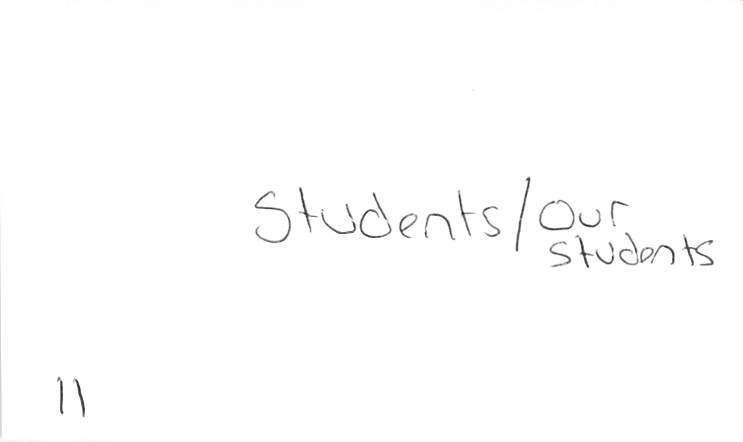 Students/Our
students
11